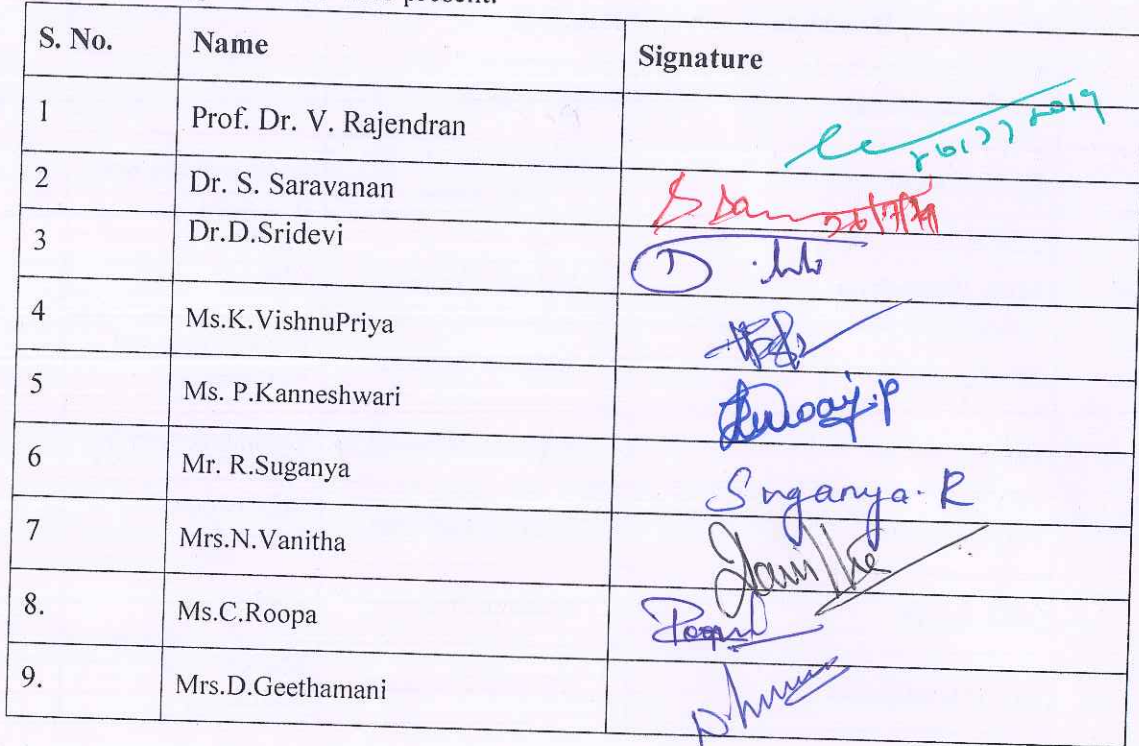 present.
S. No. Name Signature
1 Prof. Dr. V. Rajendran
2 Dr. S. Saravanan 26/7/19
3 Dr.D.Sridevi
4 Ms.K.VishnuPriya
5 Ms. P.Kanneshwari
6 Mr. R.Suganya Suganya. R
7 Mrs.N.Vanitha
8. Ms.C.Roopa
9. Mrs.D.Geethamani